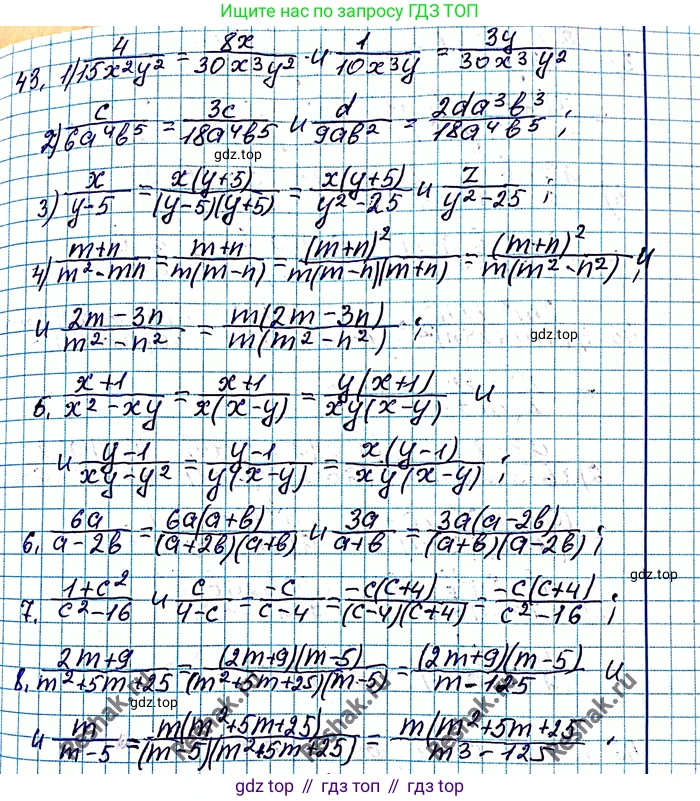 Ищите нас по запросу ГДЗ ТОП
43. 1) 4/(15x²y²) = 8x/(30x³y²) и 1/(10x³y) = 3y/(30x³y²)
2) c/(6a⁴b⁵) = 3c/(18a⁴b⁵) и d/(9ab²) = 2da³b³/(18a⁴b⁵);
gdz.top
3) x/(y-5) = x(y+5)/((y-5)(y+5)) = x(y+5)/(y²-25) и z/(y²-25);
4) (m+n)/(m²-mn) = (m+n)/(m(m-n)) = (m+n)²/(m(m-n)(m+n)) = (m+n)²/(m(m²-n²)); и
и (2m-3n)/(m²-n²) = m(2m-3n)/(m(m²-n²));
gdz.top
5. (x+1)/(x²-xy) = (x+1)/(x(x-y)) = y(x+1)/(xy(x-y)) и
и (y-1)/(xy-y²) = (y-1)/(y(x-y)) = x(y-1)/(xy(x-y));
6. 6a/(a-2b) = 6a(a+b)/((a+2b)(a+b)) и 3a/(a+b) = 3a(a-2b)/((a+b)(a-2b));
gdz.top
7. (1+c²)/(c²-16) и c/(4-c) = -c/(c-4) = -c(c+4)/((c-4)(c+4)) = -c(c+4)/(c²-16);
8. (2m+9)/(m²+5m+25) = (2m+9)(m-5)/((m²+5m+25)(m-5)) = (2m+9)(m-5)/(m-125) и
gdz.top
и m/(m-5) = m(m²+5m+25)/((m-5)(m²+5m+25)) = m(m²+5m+25/(m3-125).
Reshak.ru
Reshak.ru
Reshak.ru
Reshak.ru
gdz top // гдз топ // гдз.top